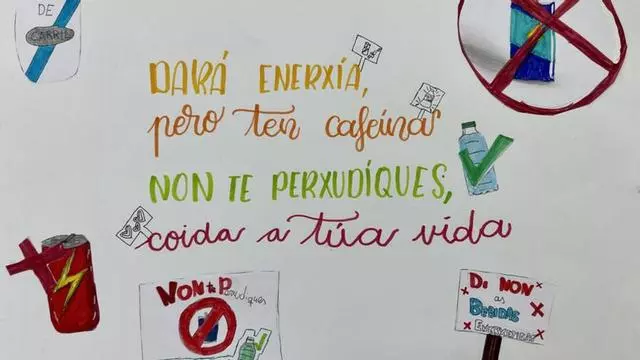 DE
CARRIL
DARÁ ENERXÍA,
pero ten cafeína
NON TE PERXUDÍQUES,
coida a túa vida
NON te Perxudiques
DI NON
as
BEBIDAS
ENERXÉTICAS